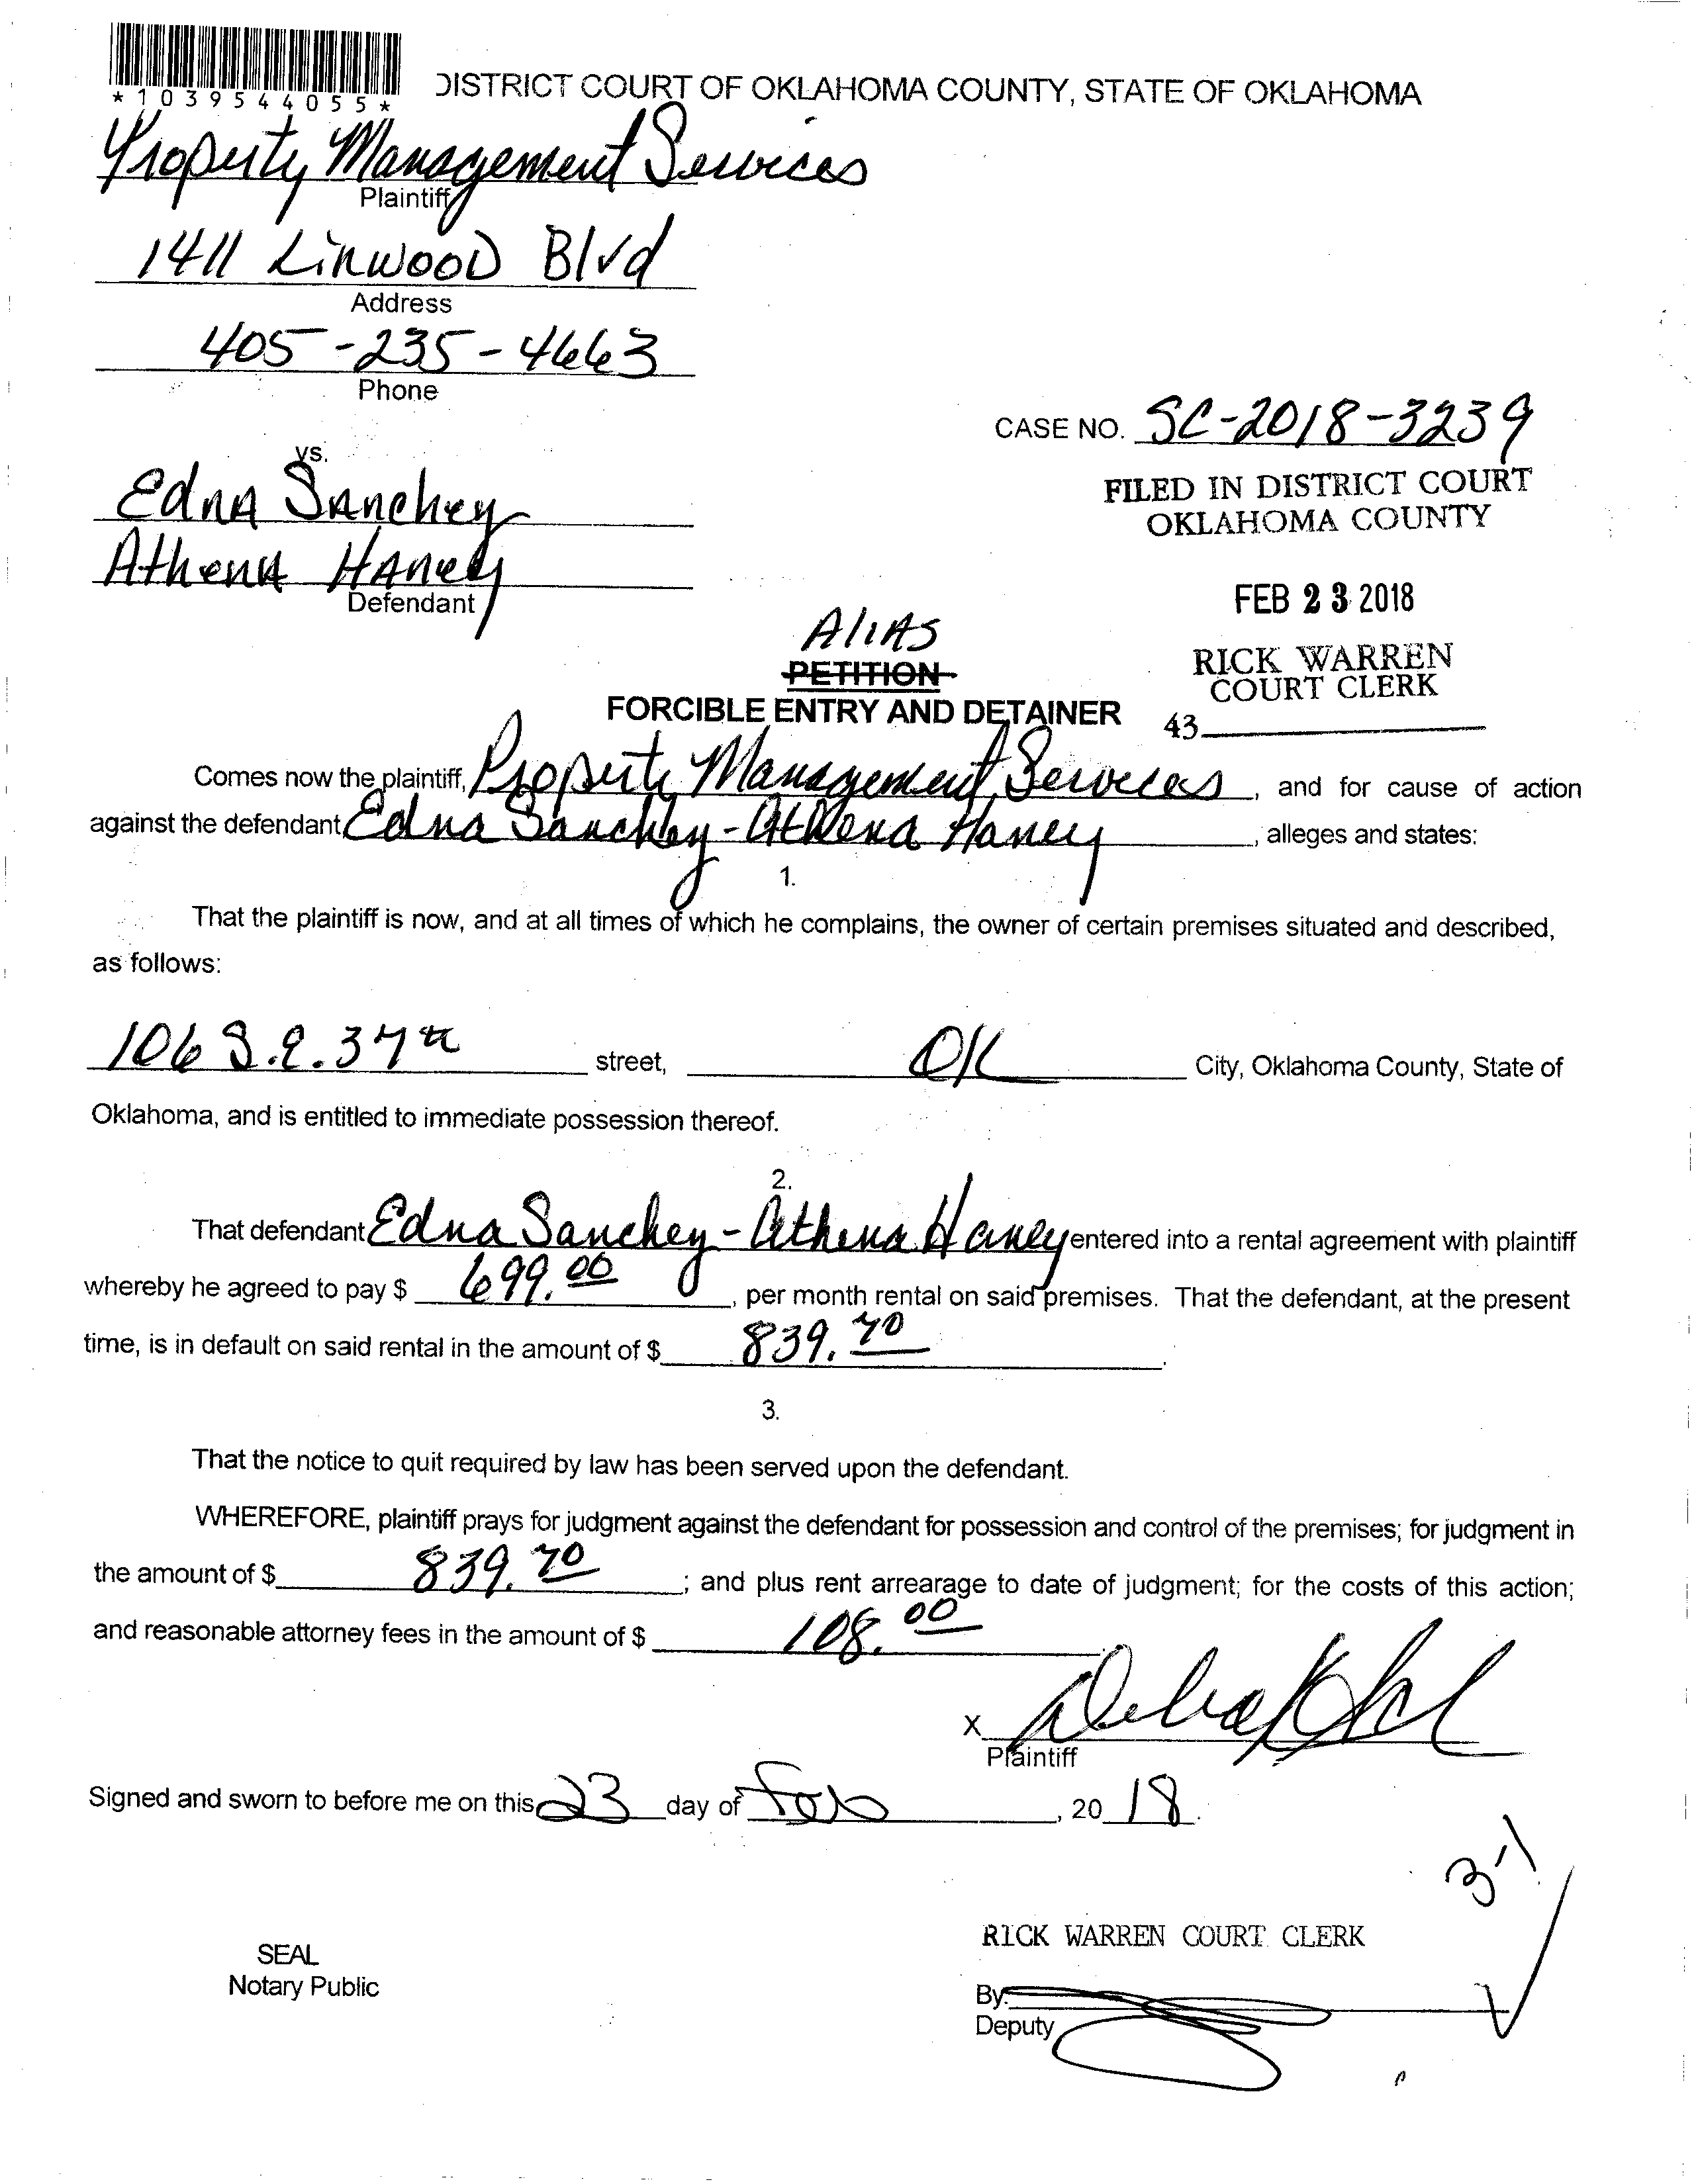 *1039544055*
DISTRICT COURT OF OKLAHOMA COUNTY, STATE OF OKLAHOMA
Property Management Services
Plaintiff
1411 Linwood Blvd
Address
405-235-4663
Phone
CASE NO. SC-2018-3239
vs.
FILED IN DISTRICT COURT
OKLAHOMA COUNTY
Edna Sanchez
Athena Haney
Defendant
FEB 23 2018
Alias
PETITION
RICK WARREN
COURT CLERK
FORCIBLE ENTRY AND DETAINER
43
Comes now the plaintiff, Property Management Services, and for cause of action
against the defendant Edna Sanchez - Athena Haney, alleges and states:
1.
That the plaintiff is now, and at all times of which he complains, the owner of certain premises situated and described,
as follows:
106 S.E. 37th street, OK City, Oklahoma County, State of
Oklahoma, and is entitled to immediate possession thereof.
2.
That defendant Edna Sanchez - Athena Haney entered into a rental agreement with plaintiff
whereby he agreed to pay $ 699.00, per month rental on said premises. That the defendant, at the present
time, is in default on said rental in the amount of $ 839.70.
3.
That the notice to quit required by law has been served upon the defendant.
WHEREFORE, plaintiff prays for judgment against the defendant for possession and control of the premises; for judgment in
the amount of $ 839.70; and plus rent arrearage to date of judgment; for the costs of this action;
and reasonable attorney fees in the amount of $ 108.00.
X
Plaintiff
Signed and sworn to before me on this 23 day of Feb, 2018.
3-1
RICK WARREN COURT CLERK
SEAL
Notary Public
By:
Deputy